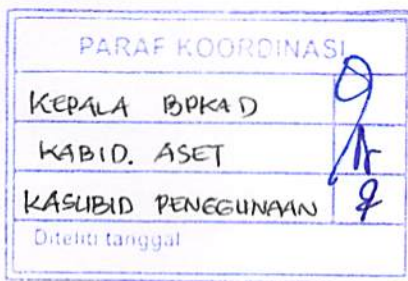 PARAF KOORDINASI
KEPALA BPKAD
KABID. ASET
KASUBID PENGGUNAAN
Diteliti tanggal